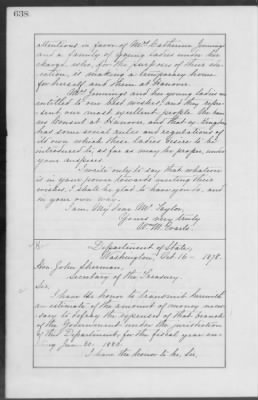 638.
attentions in favor of Mrs. Catherine Jennings
and a family of young ladies under her
charge, who, for the purposes of their edu-
cation, is making a temporary home
for herself and them at Hanover.
Mrs. Jennings and her young ladies are
entitled to our best wishes, and they repre-
sent our most excellent people. We have
no Consul at Hanover, and that of Kingdom
has some social rules and regulations of
its own which these ladies desire to be
introduced to, as far as may be proper, under
your auspices.
I write only to say that whatever
is in your power towards meeting their
wishes, I shall be glad to have you do, and
in your own way.
I am, My dear Mr. Taylor,
Yours very truly
Wm. M. Evarts.
Department of State,
Washington, Oct. 16 – 1878.
Hon. John Sherman,
Secretary of the Treasury.
Sir,
I have the honor to transmit herewith
an estimate of the amount of money neces-
sary to defray the expenses of that branch
of the Government under the jurisdiction
of this Department, for the fiscal year en-
ding June 30, 1880.
I have the honor to be, Sir,